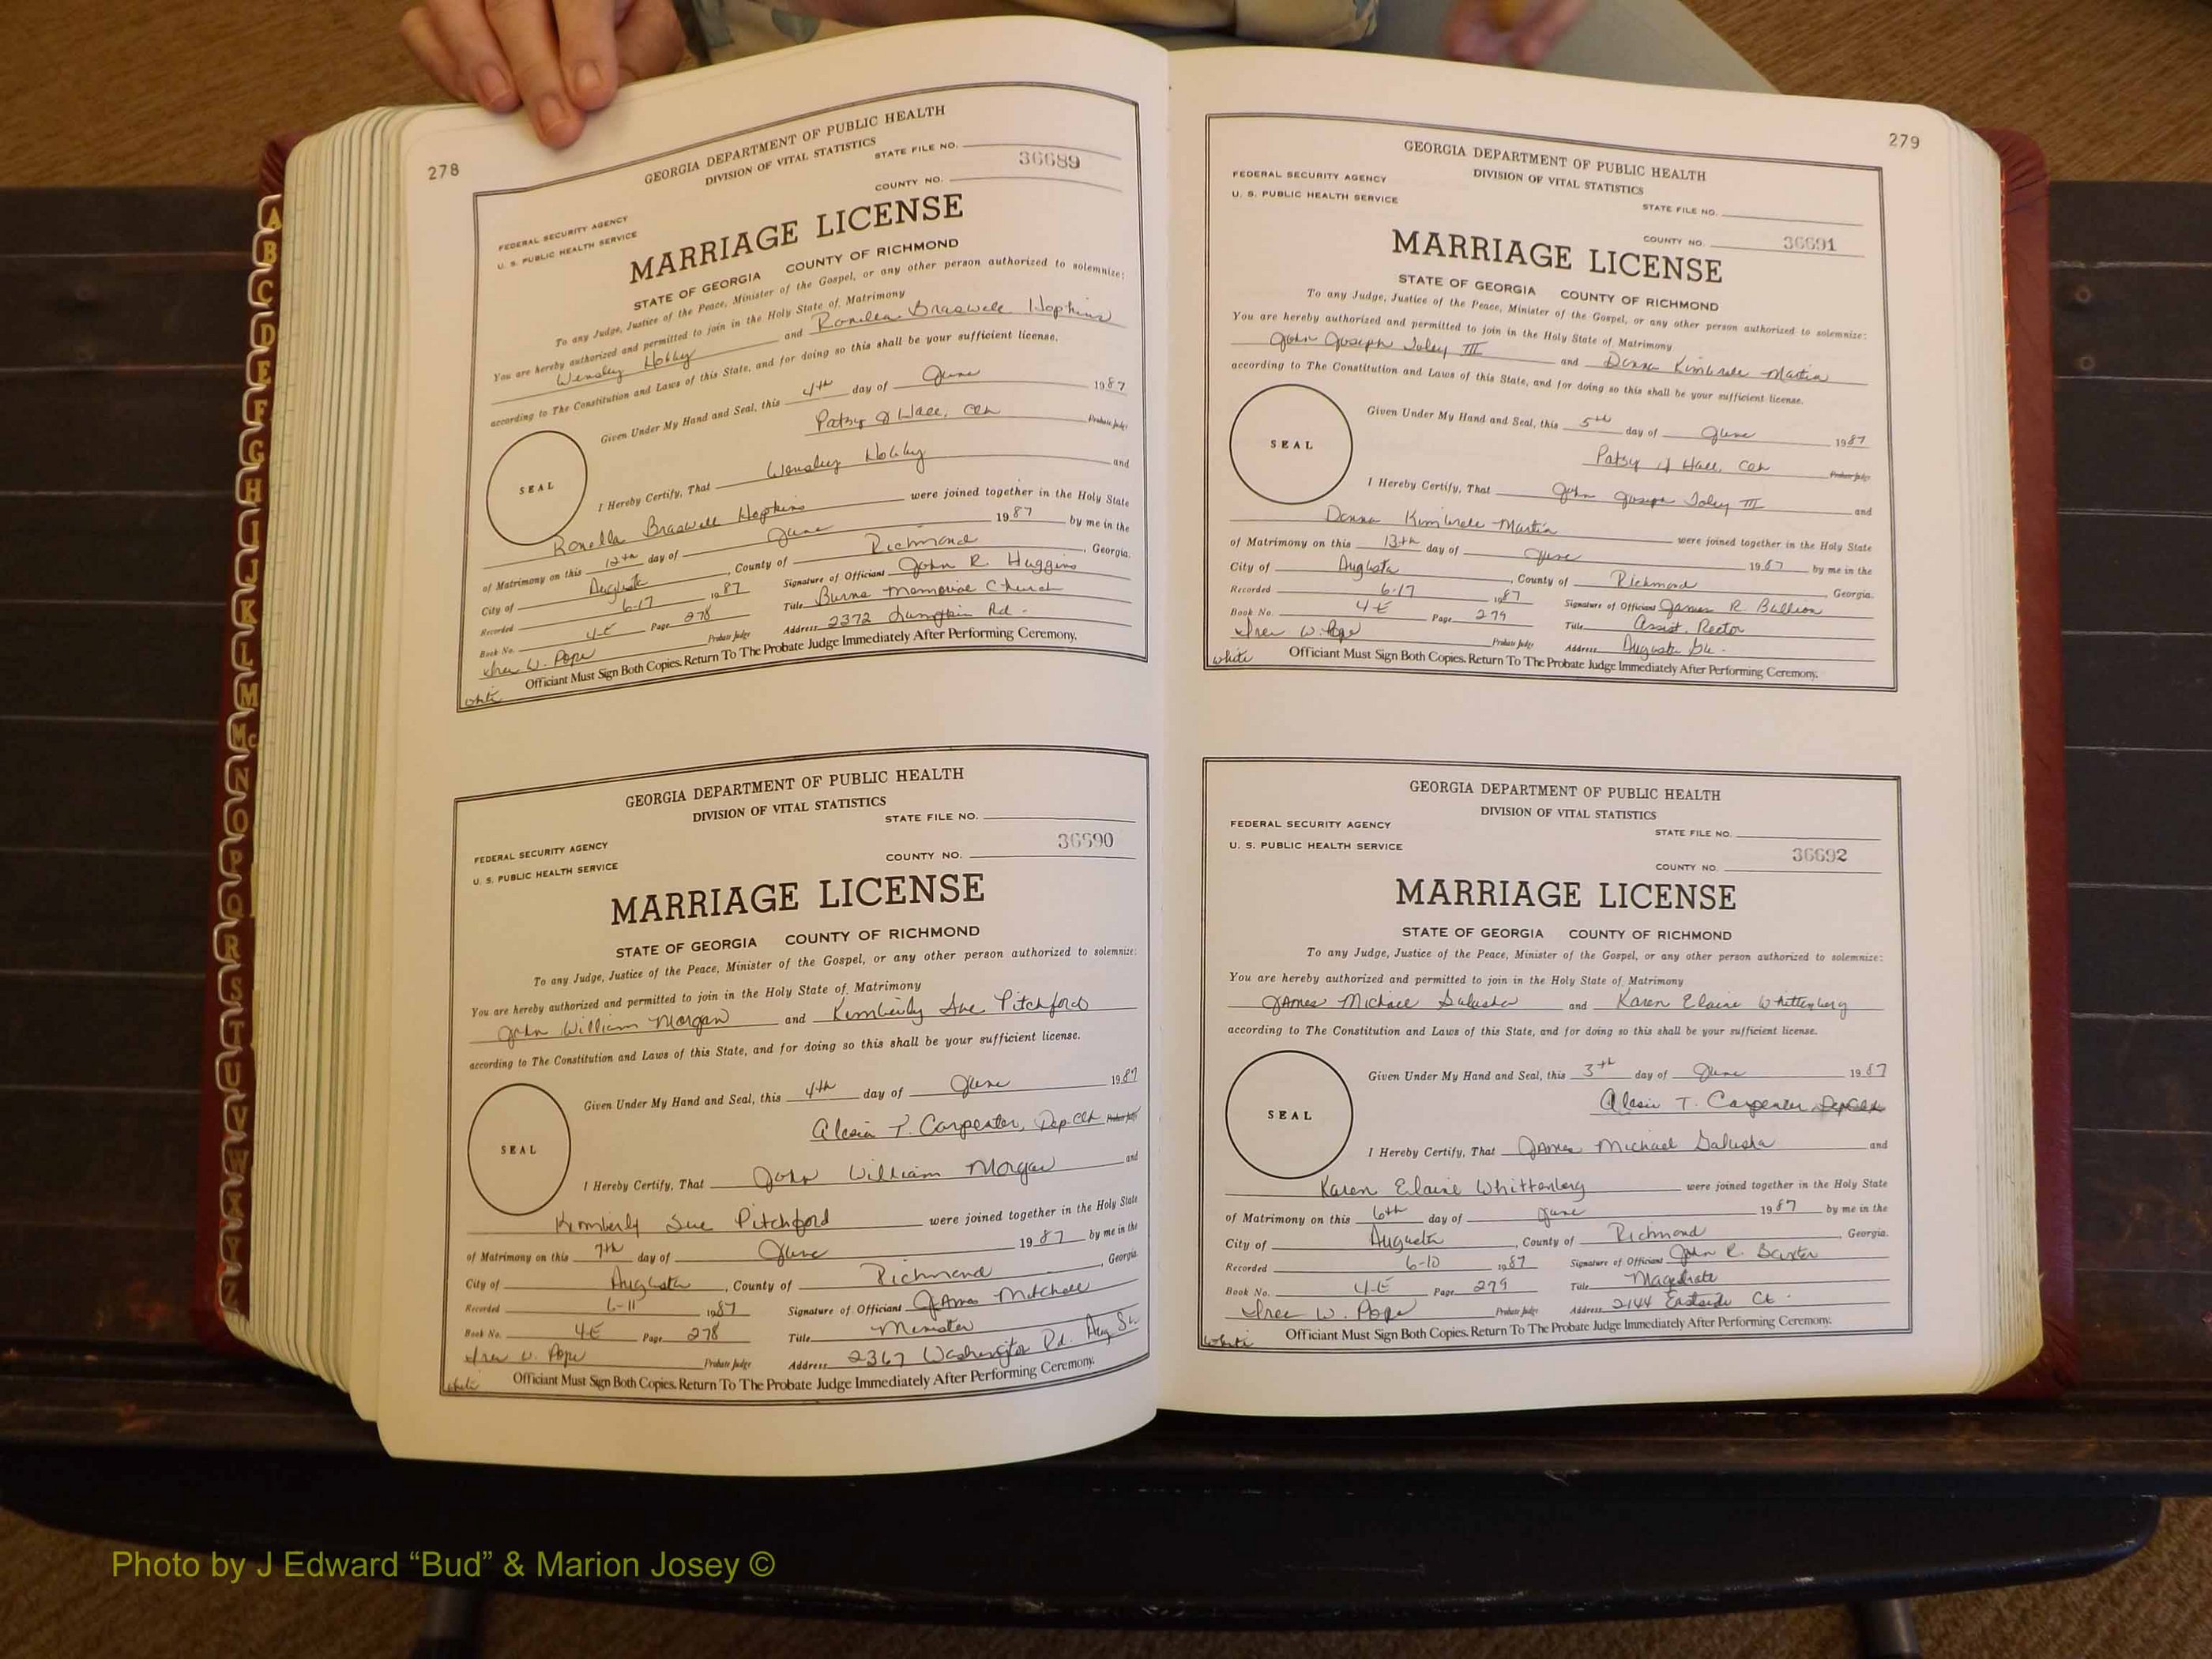 278
GEORGIA DEPARTMENT OF PUBLIC HEALTH
DIVISION OF VITAL STATISTICS
STATE FILE NO.
36689
COUNTY NO.
FEDERAL SECURITY AGENCY
U. S. PUBLIC HEALTH SERVICE
MARRIAGE LICENSE
STATE OF GEORGIA COUNTY OF RICHMOND
To any Judge, Justice of the Peace, Minister of the Gospel, or any other person authorized to solemnize:
You are hereby authorized and permitted to join in the Holy State of Matrimony
Wensley Hobby and Ronella Braswell Hopkins
according to The Constitution and Laws of this State, and for doing so this shall be your sufficient license.
Given Under My Hand and Seal, this 4th day of June 1987
Patsy J Hall, Clk Probate Judge
SEAL
I Hereby Certify, That Wensley Hobby and
Ronella Braswell Hopkins were joined together in the Holy State
of Matrimony on this 12th day of June 1987 by me in the
City of Augusta, County of Richmond, Georgia.
Recorded 6-17 1987 Signature of Officiant John R. Huggins
Book No. 4-E Page 278 Title Burns Memorial Church
W. Pope Probate Judge Address 2372 Lumpkin Rd.
white Officiant Must Sign Both Copies. Return To The Probate Judge Immediately After Performing Ceremony.
GEORGIA DEPARTMENT OF PUBLIC HEALTH
DIVISION OF VITAL STATISTICS
STATE FILE NO.
36690
FEDERAL SECURITY AGENCY
COUNTY NO.
U. S. PUBLIC HEALTH SERVICE
MARRIAGE LICENSE
STATE OF GEORGIA COUNTY OF RICHMOND
To any Judge, Justice of the Peace, Minister of the Gospel, or any other person authorized to solemnize:
You are hereby authorized and permitted to join in the Holy State of Matrimony
John William Morgan and Kimberly Sue Pitchford
according to The Constitution and Laws of this State, and for doing so this shall be your sufficient license.
Given Under My Hand and Seal, this 4th day of June 1987
Alesia T. Carpenter, Dep. Clk Probate Judge
SEAL
I Hereby Certify, That John William Morgan and
Kimberly Sue Pitchford were joined together in the Holy State
of Matrimony on this 7th day of June 1987 by me in the
City of Augusta, County of Richmond, Georgia.
Recorded 6-11 1987 Signature of Officiant James Mitchell
Book No. 4E Page 278 Title Minister
W. Pope Probate Judge Address 2367 Washington Rd. Aug Ga
white Officiant Must Sign Both Copies. Return To The Probate Judge Immediately After Performing Ceremony.
279
GEORGIA DEPARTMENT OF PUBLIC HEALTH
DIVISION OF VITAL STATISTICS
FEDERAL SECURITY AGENCY
U. S. PUBLIC HEALTH SERVICE
STATE FILE NO.
COUNTY NO. 36691
MARRIAGE LICENSE
STATE OF GEORGIA COUNTY OF RICHMOND
To any Judge, Justice of the Peace, Minister of the Gospel, or any other person authorized to solemnize:
You are hereby authorized and permitted to join in the Holy State of Matrimony
John Joseph III and Donna Kimbrele Martin
according to The Constitution and Laws of this State, and for doing so this shall be your sufficient license.
Given Under My Hand and Seal, this 5th day of June 1987
Patsy J Hall, Clk Probate Judge
SEAL
I Hereby Certify, That John Joseph III and
Donna Kimbrele Martin were joined together in the Holy State
of Matrimony on this 13th day of June 1987 by me in the
City of Augusta, County of Richmond Georgia.
Recorded 6-17 1987 Signature of Officiant James R. Bullion
Book No. 4E Page 279 Title Assist. Rector
W. Pope Probate Judge Address Augusta Ga.
white Officiant Must Sign Both Copies. Return To The Probate Judge Immediately After Performing Ceremony.
GEORGIA DEPARTMENT OF PUBLIC HEALTH
DIVISION OF VITAL STATISTICS
FEDERAL SECURITY AGENCY
STATE FILE NO.
U. S. PUBLIC HEALTH SERVICE
36692
COUNTY NO.
MARRIAGE LICENSE
STATE OF GEORGIA COUNTY OF RICHMOND
To any Judge, Justice of the Peace, Minister of the Gospel, or any other person authorized to solemnize:
You are hereby authorized and permitted to join in the Holy State of Matrimony
James Michael Galusha and Karen Elaine Whittenberg
according to The Constitution and Laws of this State, and for doing so this shall be your sufficient license.
Given Under My Hand and Seal, this 3th day of June 1987
Alesia T. Carpenter Dep Clk
SEAL
I Hereby Certify, That James Michael Galusha and
Karen Elaine Whittenberg were joined together in the Holy State
of Matrimony on this 6th day of June 1987 by me in the
City of Augusta, County of Richmond, Georgia.
Recorded 6-10 1987 Signature of Officiant John R. Baxter
Book No. 4-E Page 279 Title Magistrate
W. Pope Probate Judge Address 2144 Eastside Ct.
white Officiant Must Sign Both Copies. Return To The Probate Judge Immediately After Performing Ceremony.
A
B
C
D
E
F
G
H
I
J
K
L
M
Mc
N
O
P
Q
R
S
T
U
V
W
X
Y
Z
Photo by J Edward “Bud” & Marion Josey ©